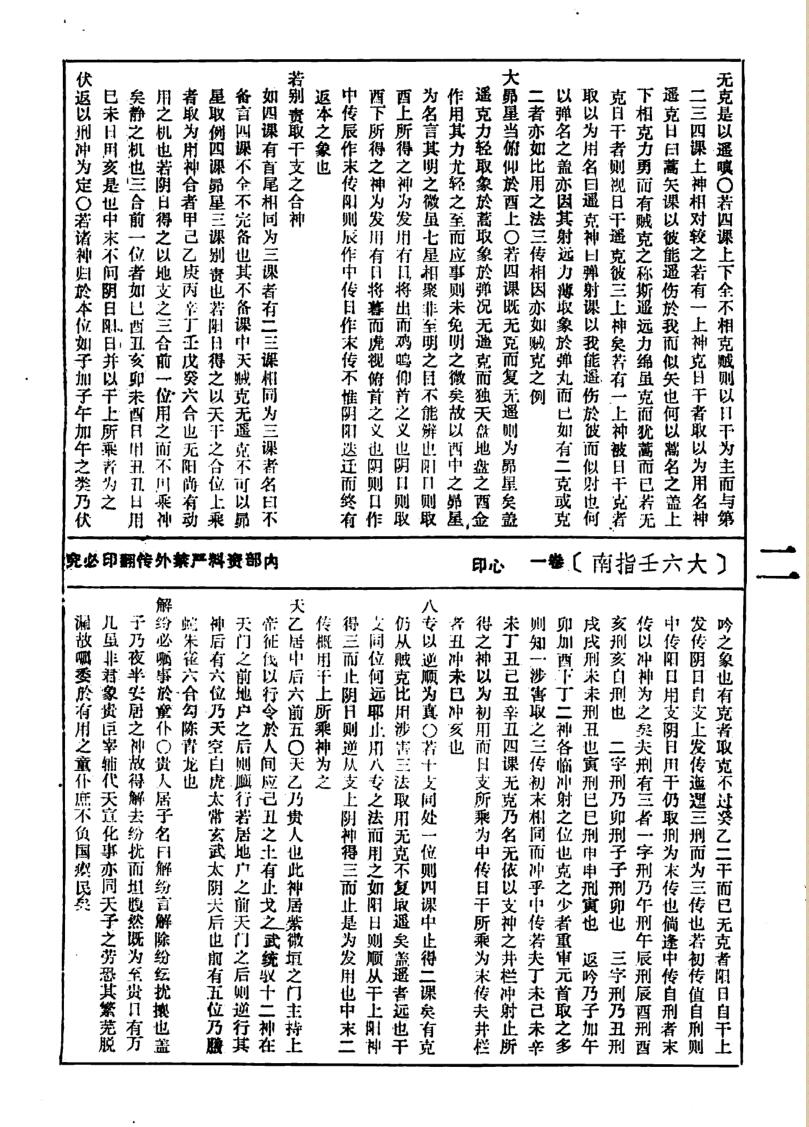 无克是以遥嗔〇若四课上下全不相克贼则以日干为主而与第
二三四课上神相对较之若有一上神克日干者取以为用名神
遥克日曰蒿矢课以彼能遥伤於我而似矢也何以蒿名之盖上
下相克力勇而有贼克之称斯遥远力绵虽克而犹蒿而已若无
克日干者则视日干遥克彼三上神矣若有一上神被日干克者
取以为用名曰遥克神曰弹射课以我能遥伤於彼而似射也何
以弹名之盖亦因其射远力薄取象於弹丸而已如有二克或克
二者亦如比用之法三传相因亦如贼克之例
大昴星当俯仰於酉上〇若四课既无克而复无遥则为昴星矣盖
遥克力轻取象於蒿取象於弹况无遥克而独天盘地盘之酉金
作用其力尤轻之至而应事则未免明之微矣故以酉中之昴星
为名言其明之微虽七星相聚非至明之目不能辨也阳日则取
酉上所得之神为发用有日将出而鸡鸣仰首之义也阴日则取
酉下所得之神为发用有日将暮而虎视俯首之义也阴则日作
中传辰作末传阳则辰作中传日作末传不惟阴阳迭迁而终有
返本之象也
若别责取干支之合神
如四课有首尾相同为三课者有二三课相同为三课者名曰不
备言四课不全不完备也其不备课中天贼克无遥克不可以昴
星取例四课昴星三课别责也若阳日得之以天干之合位上乘
者取为用神合者甲己乙庚丙辛丁壬戊癸六合也无阳尚有动
用之机也若阴日得之以地支之三合前一位用之而不用乘神
矣静之机也三合前一位者如巳酉丑亥卯未酉日用丑丑日用
巳未日用亥是也中末不问阴日阳日并以干上所乘者为之
伏返以刑冲为定〇若诸神归於本位如子加子午加午之类乃伏
内部资料严禁外传翻印必究
心印
卷一
〔大六壬指南〕
二
吟之象也有克者取克不过癸乙二干而已无克者阳日自干上
发传阴日自支上发传迤逦三刑而为三传也若初传值自刑则
中传阳日用支阴日用干仍取刑为末传也倘逢中传自刑者末
传以冲神为之矣夫刑有三者一字刑乃午刑午辰刑辰酉刑酉
亥刑亥自刑也 二字刑乃卯刑子子刑卯也 三字刑乃丑刑
戌戌刑未未刑丑也寅刑巳巳刑申申刑寅也 返吟乃子加午
卯加酉下丁二神各临冲射之位也克之少者重审元首取之多
则知一涉害取之三传初末相同而冲乎中传若夫丁未己未辛
未丁丑己丑辛丑四课无克乃名无依以支神之井栏冲射止所
得之神以为初用而日支所乘为中传日干所乘为末传夫井栏
者丑冲未巳冲亥也
八专以逆顺为真〇若干支同处一位则四课中止得二课矣有克
仍从贼克比用涉害三法取用无克不复取遥矣盖遥者远也干
支同位何远耶止用八专之法而用之如阳日则顺从干上阳神
得三而止阴日则逆从支上阴神得三而止是为发用也中末二
传概用干上所乘神为之
天乙居中后六前五〇天乙乃贵人也此神居紫微垣之门主持上
帝征伐以行令於人间应己丑之土有止戈之武统驭十二神在
天门之前地户之后则顺行若居地户之前天门之后则逆行其
神后有六位乃天空白虎太常玄武太阴天后也前有五位乃螣
蛇朱雀六合勾陈青龙也
解纷必嘱事於童仆〇贵人居子名曰解纷言解除纷纭扰攘也盖
子乃夜半安居之神故得解去纷扰而坦腹然既为至贵日有万
几虽非君象贵臣宰辅代天宣化事亦同天子之劳恐其繁芜脱
漏故嘱委於有用之童仆庶不负国瘝民矣